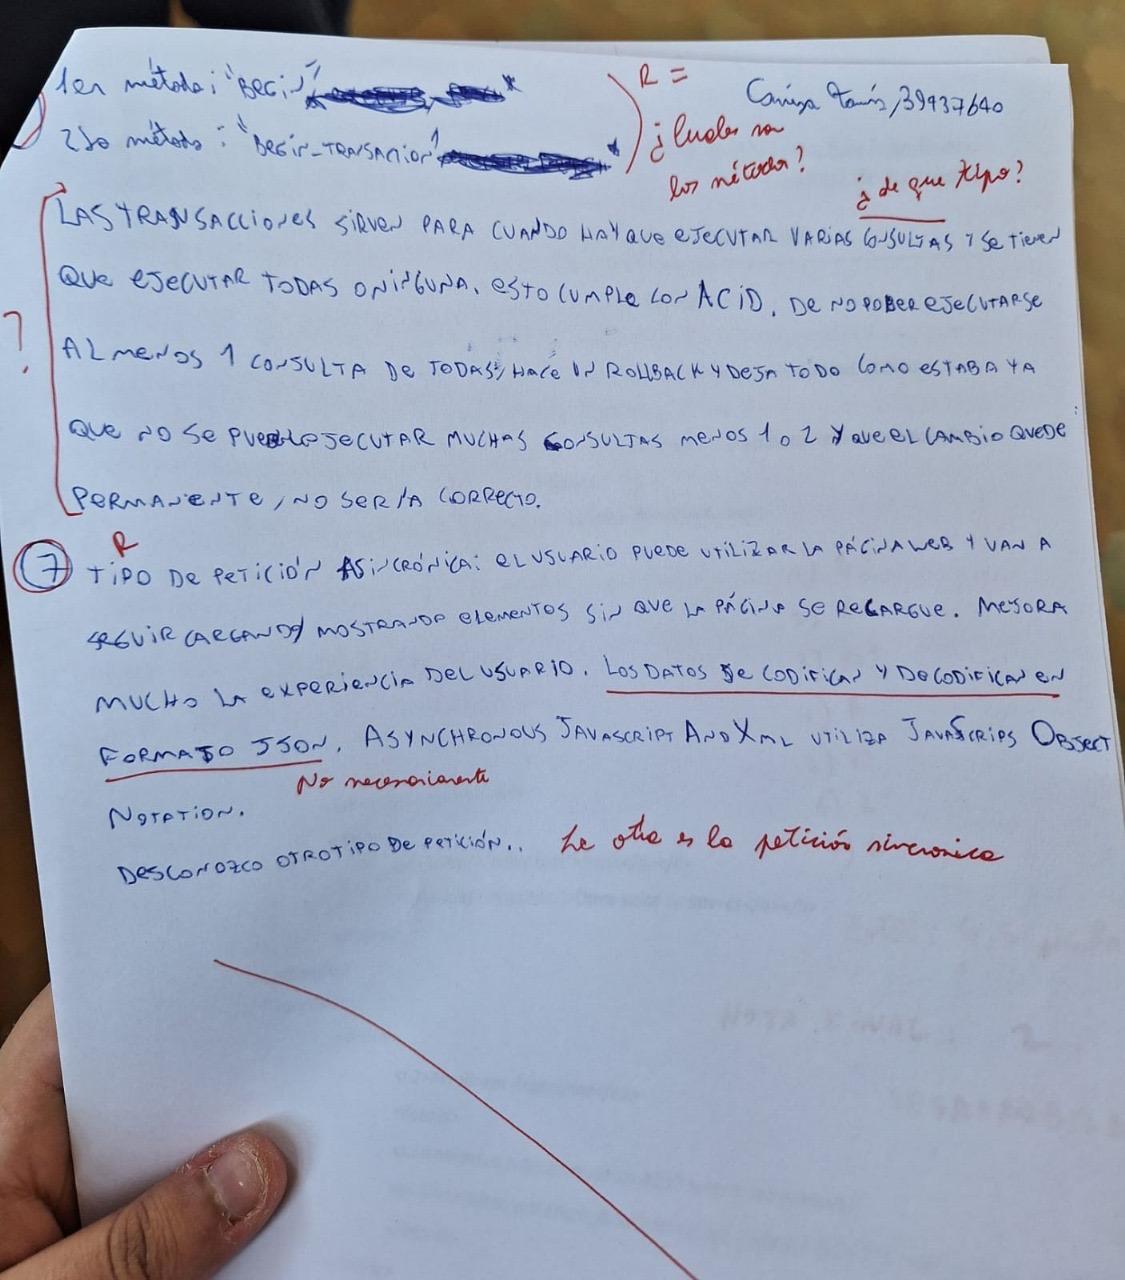 1er método: "BEGIN"
R =
Tomás, 39937640
2do método: "BEGIN_TRANSACTION"
¿Cuales son
los métodos?
¿de que tipo?
LAS TRANSACCIONES SIRVEN PARA CUANDO HAY QUE EJECUTAR VARIAS CONSULTAS Y SE TIENEN
QUE EJECUTAR TODAS O NINGUNA. ESTO CUMPLE CON ACID. DE NO PODER EJECUTARSE
?
AL MENOS 1 CONSULTA DE TODAS, HACE UN ROLLBACK Y DEJA TODO COMO ESTABA YA
QUE NO SE PUEDE EJECUTAR MUCHAS CONSULTAS MENOS 1 O 2 Y QUE EL CAMBIO QUEDE
PERMANENTE, NO SERÍA CORRECTO.
R
7 TIPO DE PETICIÓN ASINCRÓNICA: EL USUARIO PUEDE UTILIZAR LA PÁGINA WEB Y VAN A
SEGUIR CARGANDO/MOSTRANDO ELEMENTOS SIN QUE LA PÁGINA SE RECARGUE. MEJORA
MUCHO LA EXPERIENCIA DEL USUARIO. LOS DATOS SE CODIFICAN Y DECODIFICAN EN
FORMATO JSON. ASYNCHRONOUS JAVASCRIPT AND XML UTILIZA JAVASCRIPS OBJECT
No necesariamente
NOTATION.
DESCONOZCO OTRO TIPO DE PETICIÓN.. La otra es la petición sincronica